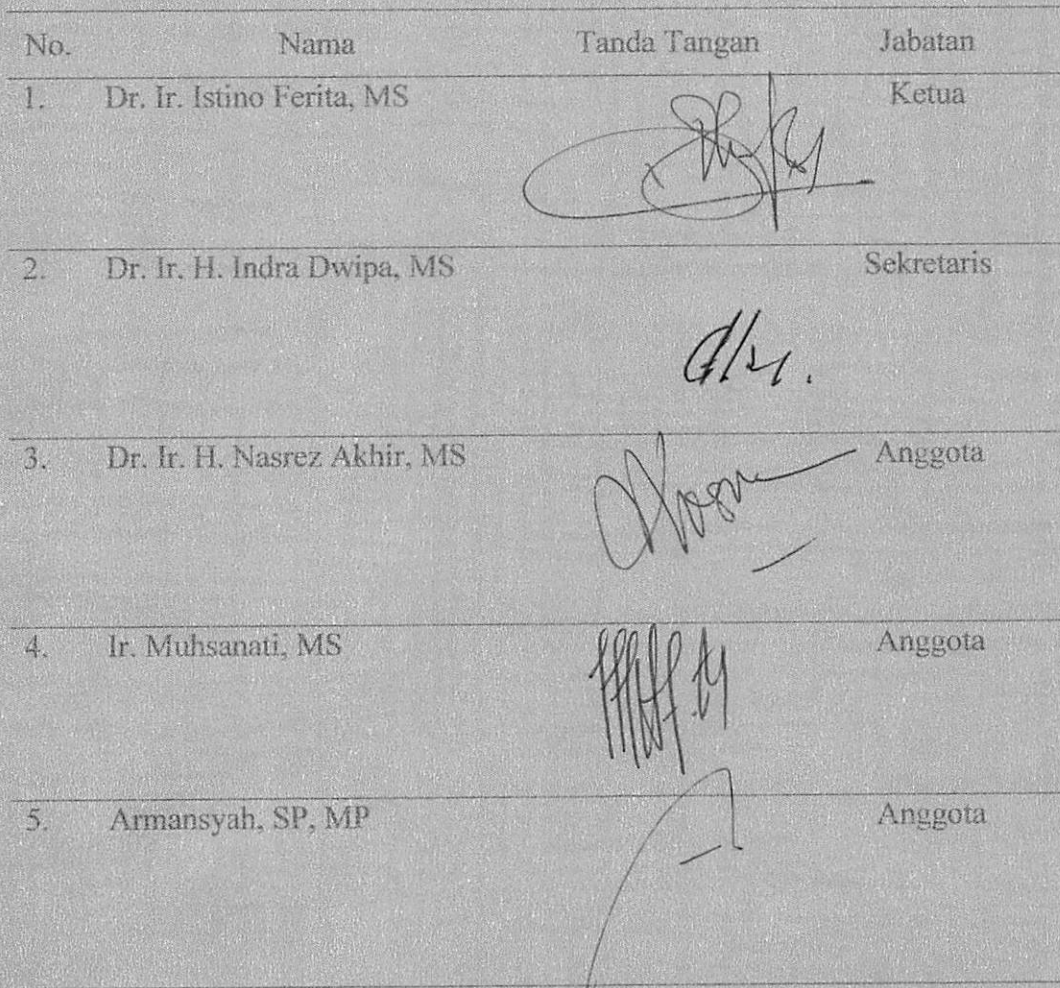 No. Nama Tanda Tangan Jabatan
1. Dr. Ir. Istino Ferita, MS Ketua
2. Dr. Ir. H. Indra Dwipa, MS Sekretaris
3. Dr. Ir. H. Nasrez Akhir, MS Anggota
4. Ir. Muhsanati, MS Anggota
5. Armansyah, SP, MP Anggota